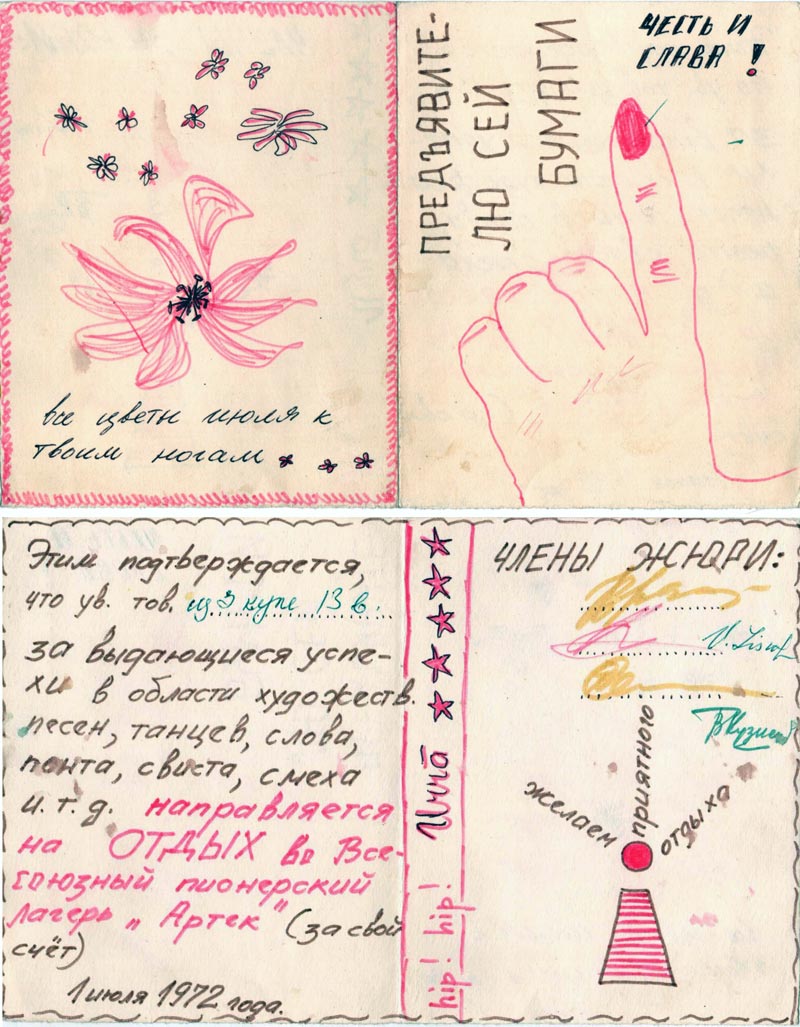 все цветы июля к
твоим ногам
ПРЕДЪЯВИТЕ-
ЛЮ СЕЙ
БУМАГИ
ЧЕСТЬ И
СЛАВА!
Этим подтверждается,
что ув. тов. из 3 купе 13 в.
за выдающиеся успе-
хи в области художеств.
песен, танцев, слова,
пента, свиста, смеха
и.т.д. направляется
на ОТДЫХ во Все-
союзный пионерский
лагерь „Артек" (за свой
счёт)
1 июля 1972 года.
hip! hip! Инна
ЧЛЕНЫ ЖЮРИ:
желаем
приятного
отдыха